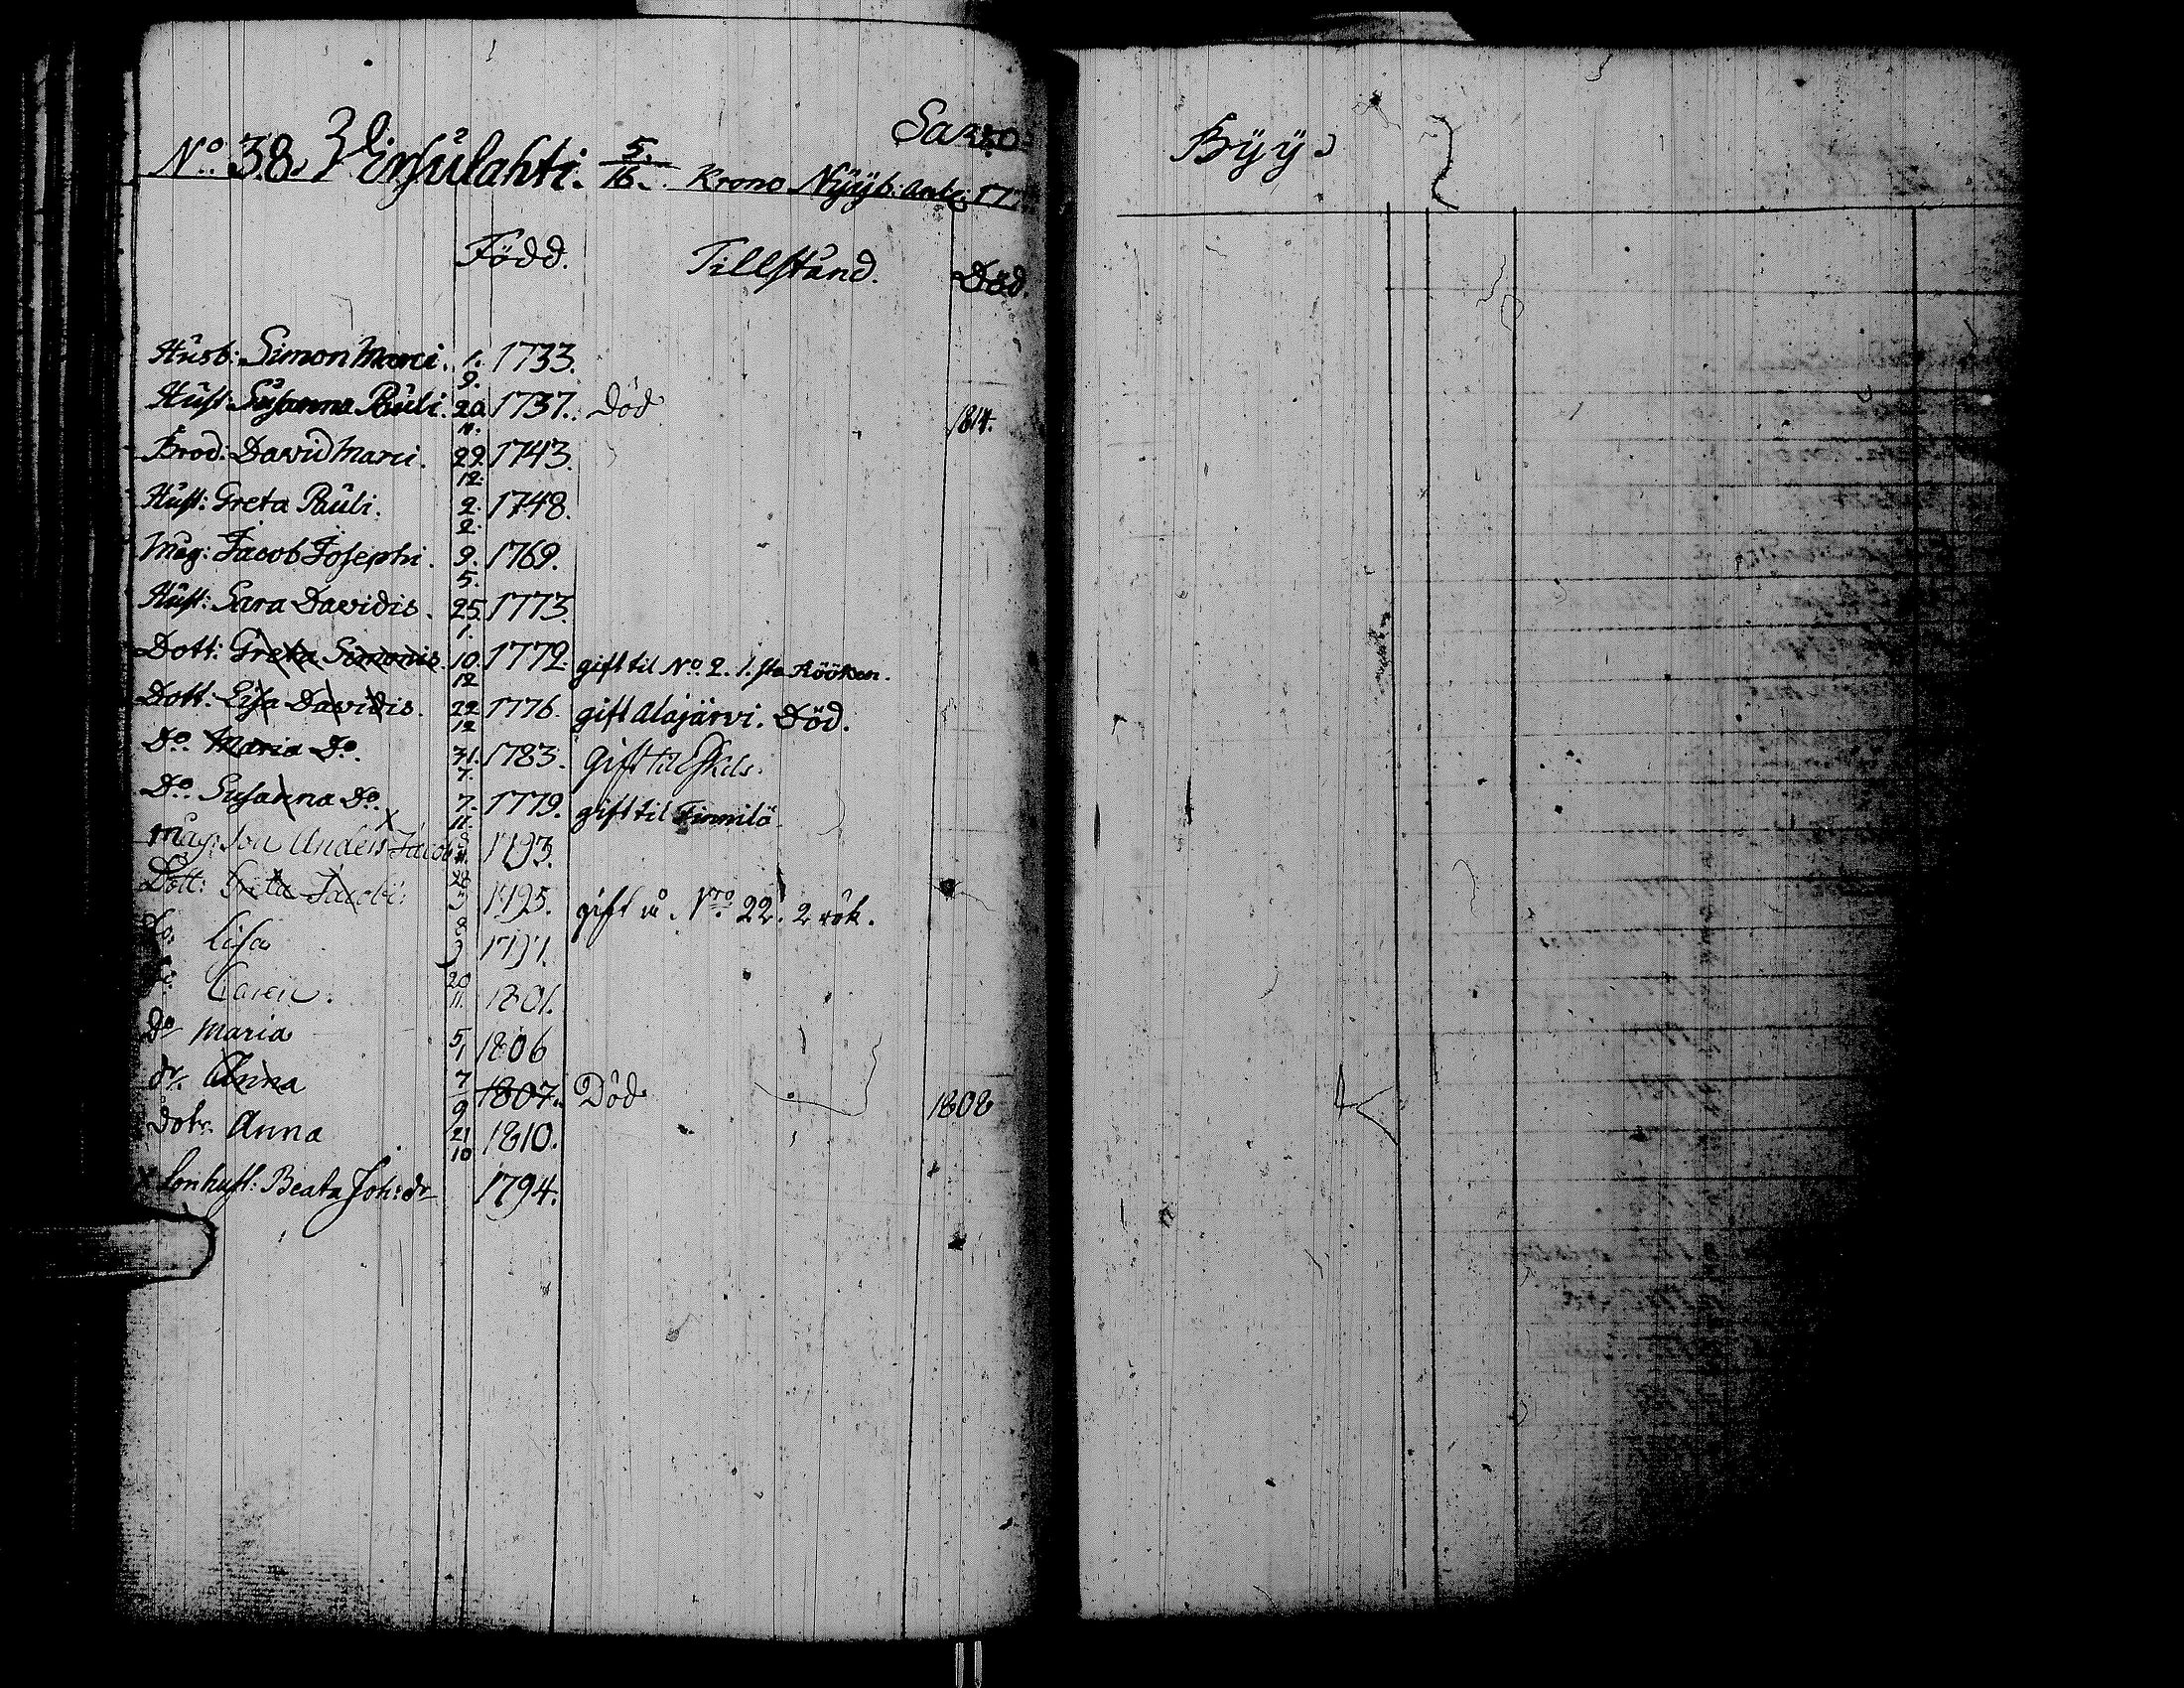 Saxo
No 38. Virsulahti. 5/16. Krono Nÿÿb: Anl: 17
Född. Tillstånd. Död.
Husb: Simon Marci. 1. 9. 1733.
Hust: Susanna Pauli. 20. 11. 1737. Död 1814.
Brod: David Marci. 29. 12. 1743.
Hust: Greta Pauli. 2. 2. 1748.
Måg: Jacob Josephi. 9. 5. 1769.
Hust: Sara Davidis. 25. 1. 1773.
Dott: Greta Simonis 10. 12 1772. gift til No. 2. 1. sta Rööken.
Dott: Lisa Davidis. 22 12 1776. gift Alajärvi. Död.
Do. Maria Do. 31. 7. 1783. Gift til Eskils.
Do. Susanna Do. 7. 11. 1779. gift til Finnilä
Måg: Son Anders Jacob 8 11. 1793.
Dott: Greta Jacobi: 28 3 1795. gift å No 22. 2 rök.
Do: Lisa 8 9 1797.
Do. Caren. 20 11. 1801.
Do Maria 5/1 1806
dr. Anna 7/9 1807. Död 1808
dotr. Anna 21 10 1810.
x Sonhust: Beata Joh: dr 1794.
Bÿÿ